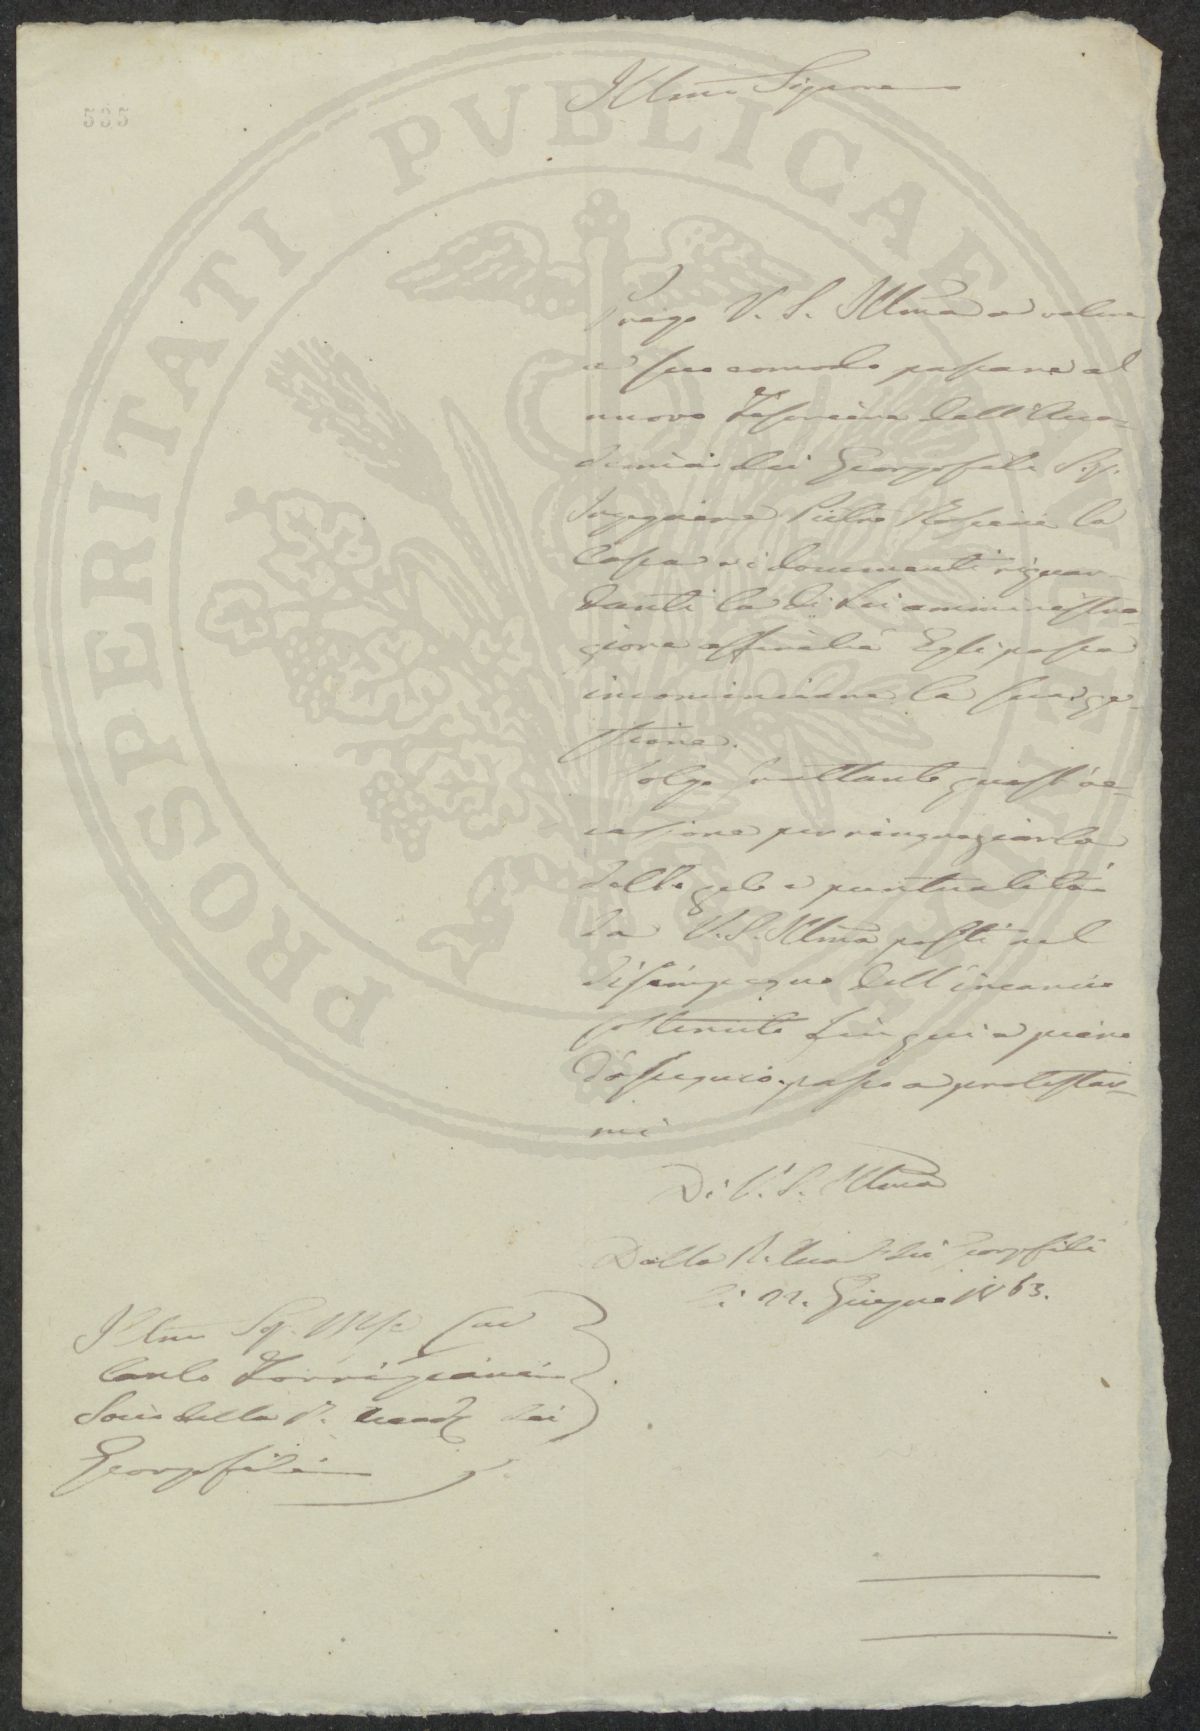 535
Illmo Signore
Prego V. S. Illma a volere
a suo comodo passare al
nuovo Tesoriere dell'Acca-
demia dei Georgofili Sig.
Ingegnere Pietro la
Cassa e i documenti riguar-
danti la di Lei amministra-
zione affinché Egli possa
incominciare la sua ge-
stione.
Colgo frattanto quest'oc-
casione per ringraziarla
dello zelo e puntualità
da V. S. Illma posti nel
disimpegno dell'incarico
sostenuto fin qui e pieno
d'ossequio passo a protestar-
mi
Di V. S. Illma
Dalla R. Accad. dei Georgofili
li 22. Giugno 1863.
Illmo Sig. Mse Cav
Carlo Torrigiani
Socio della R. Accad. dei
Georgofili
PROSPERITATI PVBLICAE